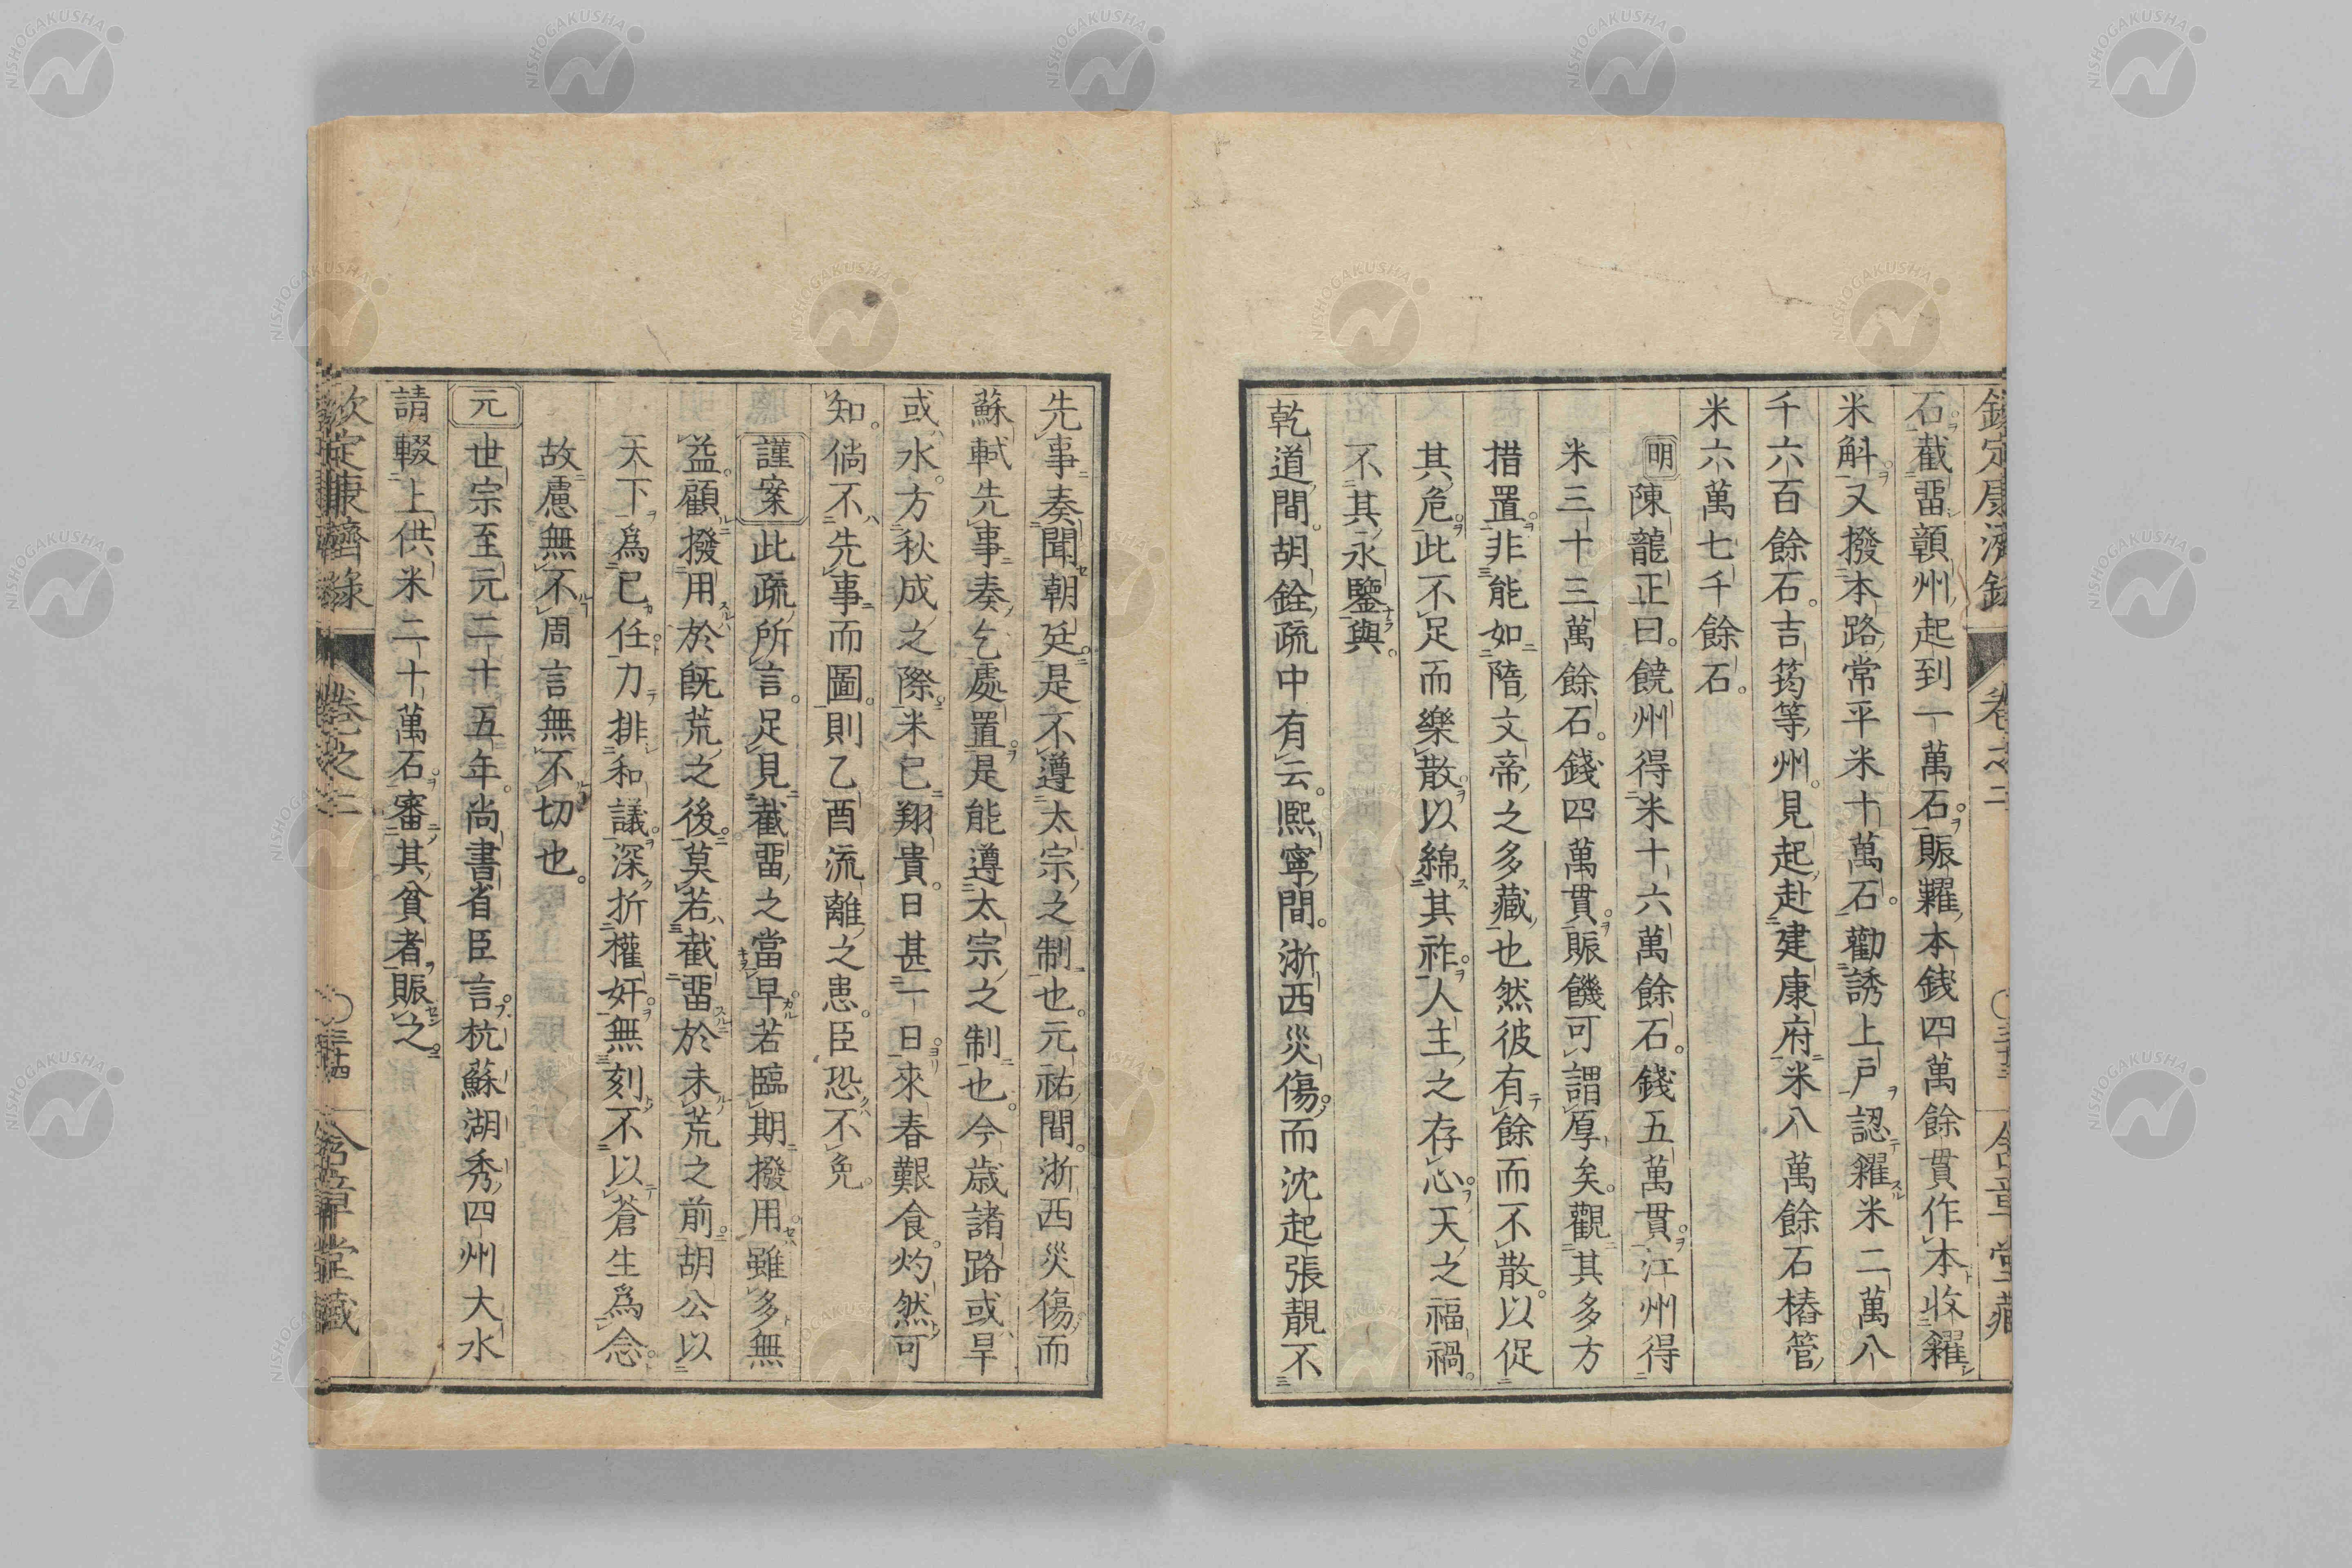 欽定康濟録 卷之二 〇三十三 含章堂藏
石截畱贛州起到一萬石賑糶本錢四萬餘貫作本收糴
米斛又撥本路常平米十萬石勸誘上戶認糴米二萬八
千六百餘石吉筠等州見起赴建康府米八萬餘石樁管
米六萬七千餘石
明陳龍正曰饒州得米十六萬餘石錢五萬貫江州得
米三十三萬餘石錢四萬貫賑饑可謂厚矣觀其多方
措置非能如隋文帝之多藏也然彼有餘而不散以促
其危此不足而樂散以綿其祚人主之存心天之福禍
不其永鑒與
乾道間胡銓疏中有云熙寧間浙西災傷而沈起張靚不
先事奏聞朝廷是不遵太宗之制也元祐間浙西災傷而
蘇軾先事奏乞處置是能遵太宗之制也今歲諸路或旱
或水方秋成之際米已翔貴日甚一日來春艱食灼然可
知倘不先事而圖則乙酉流離之患臣恐不免
謹案此疏所言足見截畱之當早若臨期撥用雖多無
益顧撥用於既荒之後莫若截畱於未荒之前胡公以
天下爲己任力排和議深折權奸無刻不以蒼生爲念
故慮無不周言無不切也
元世宗至元二十五年尚書省臣言杭蘇湖秀四州大水
請輟上供米二十萬石審其貧者賑之
欽定康濟録 卷之二 〇三十四 含章堂藏
NISHOGAKUSHA